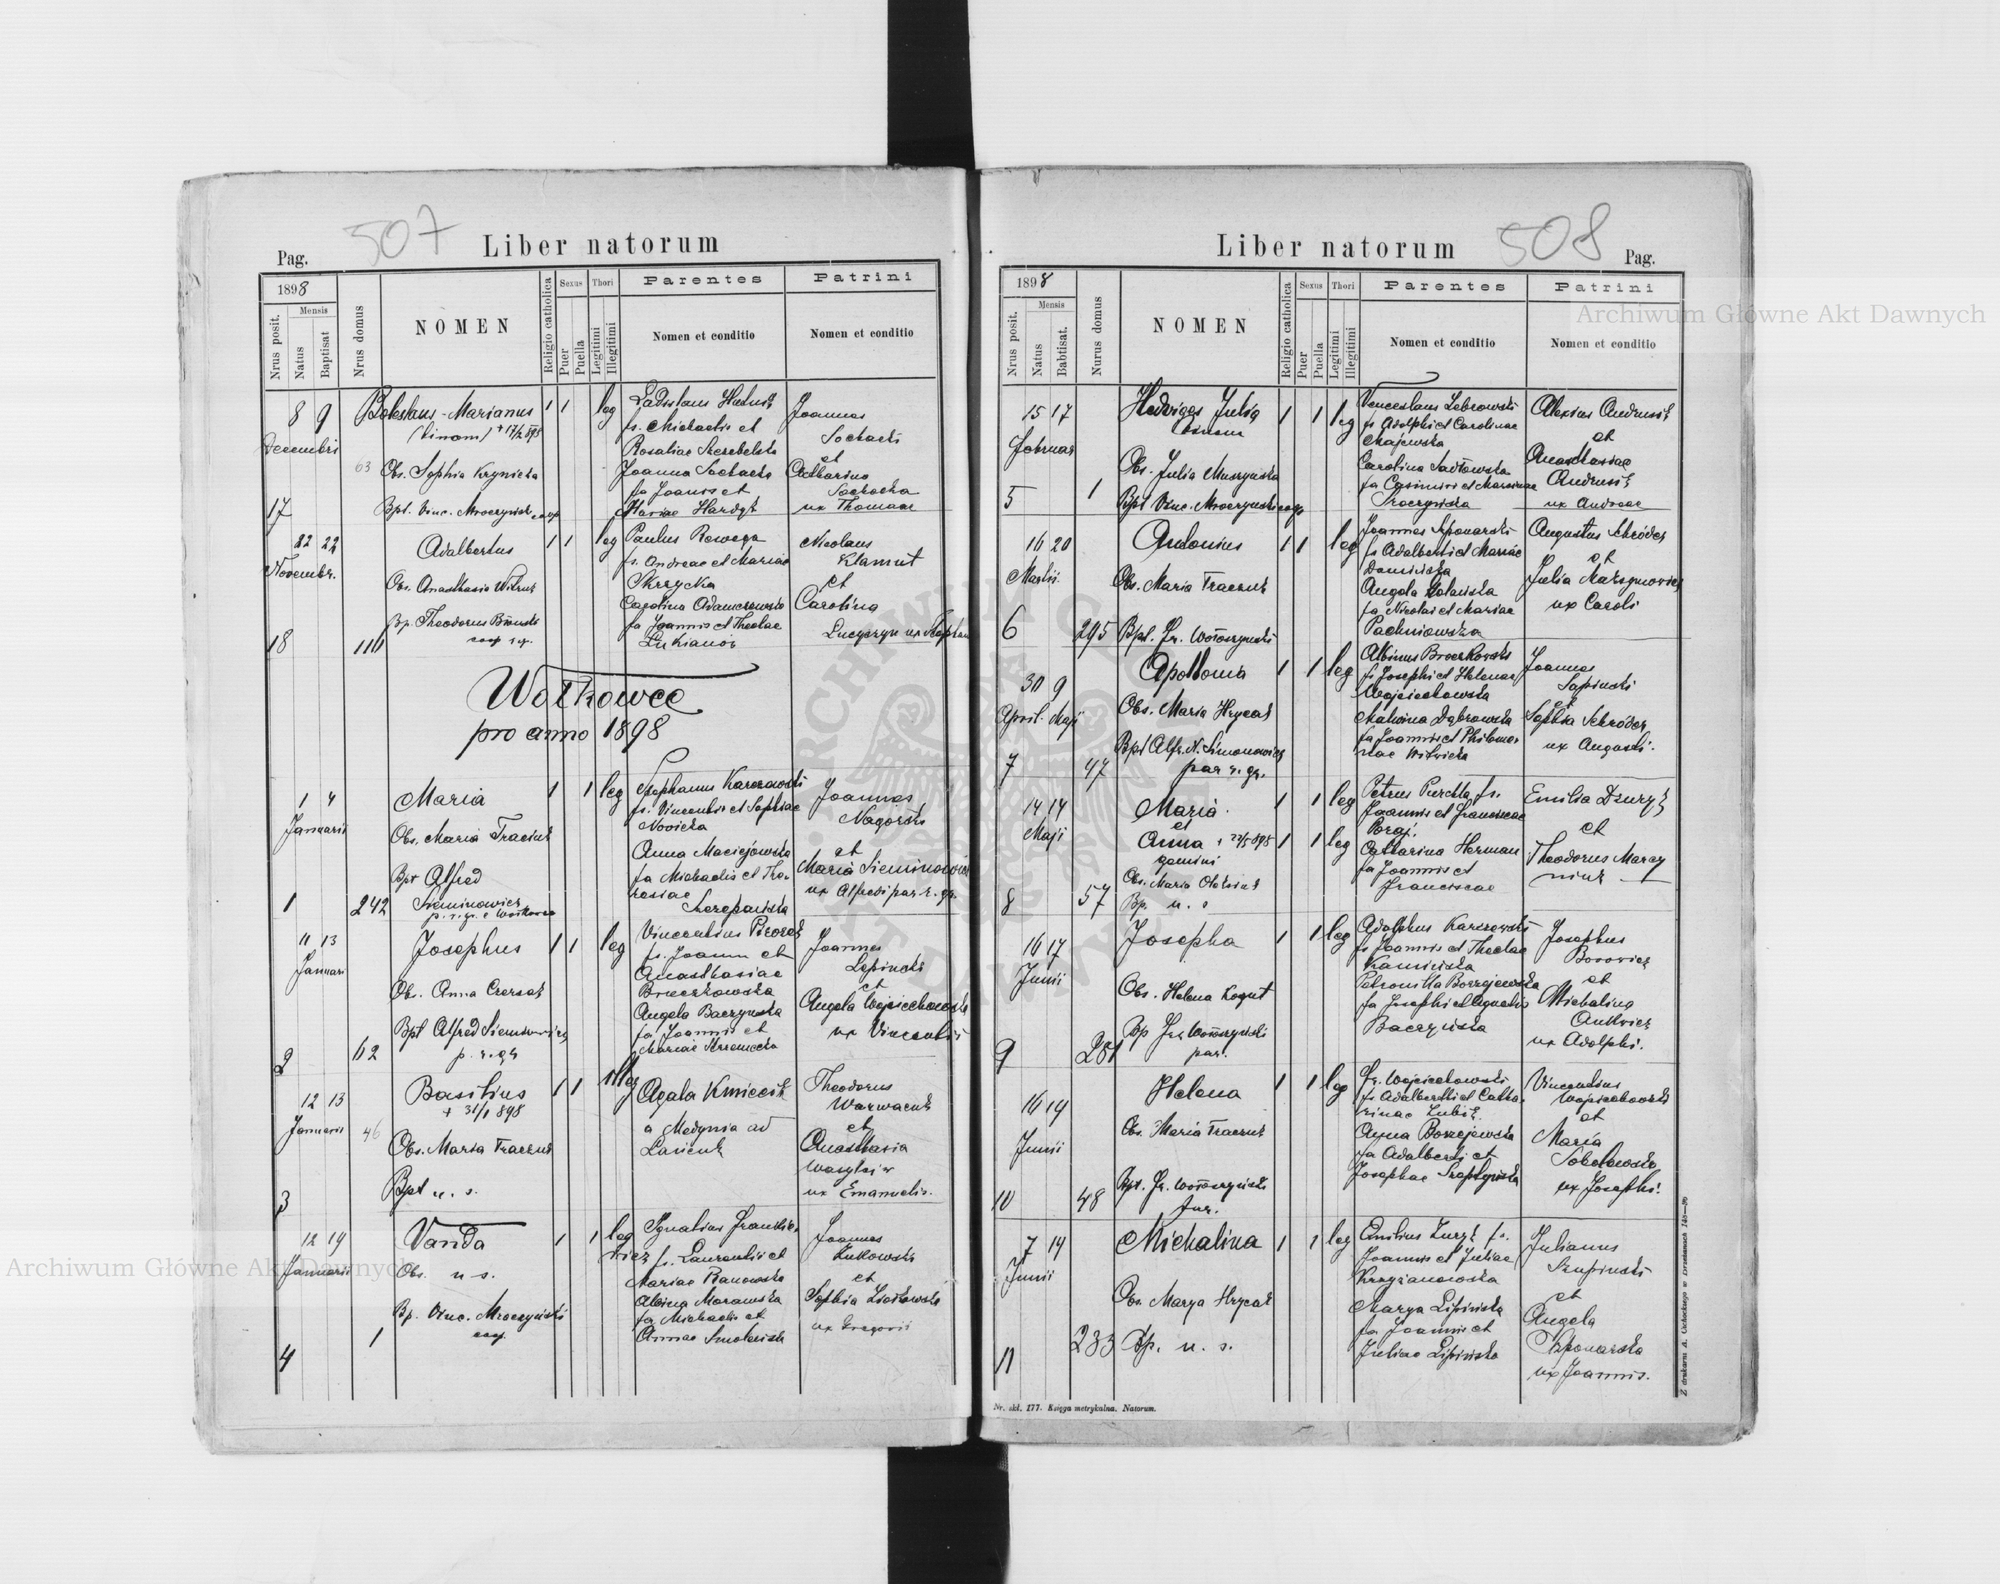 507
Liber natorum
Pag.
1898
Mensis
Nrus posit.
Natus
Baptisat
Nrus domus
NOMEN
Religio catholica
Sexus
Puer
Puella
Thori
Legitimi
Illegitimi
Parentes
Nomen et conditio
Patrini
Nomen et conditio
17
8 9
Decembri
63
Boleslaus-Marianus
(binom)
Obs. Sophia Krynicka
Bpt. Vinc. Mroczyński coop
1 1 leg
Ladislaus
fs. Michaelis et
Rosaliae
Joanna Sochacka
fa Joannis et
Mariae
Joannes
Sochacki
et
Catharina
Sochacka
ux Thomae
18
22 22
Novembr.
116
Adalbertus
Obs. Anasthasia
Bp. Theodorus
coop r. g.
1 1 leg
Paulus Rewega
fs. Andreae et Mariae
Skrzycka
Carolina Adamczewska
fa Joannis et Theclae
Lukianów
Nicolaus
Klamut
et
Carolina
ux Stephani
Wołkowce
pro anno 1898
1
1 4
Januarii
242
Maria
Obs. Maria Traczuk
Bpt Alfred
Sieminowicz
p. r. gr. e Wołkowce
1 1 leg
Stephanus Karczewski
fs. Vincentii et Sophiae
Novicka
Anna Maciejowska
fa Michaelis et The-
resiae
Szczepańska
Joannes
Nagórski
et
Maria Sieminowicz
ux Alfredi par. r. gr.
2
11 13
Januari
62
Josephus
Obs. Anna
Bpt Alfred Sieminowicz
p. r. gr
1 1 leg
Vincentius
fs. Joannis et
Anasthasiae
Broczkowska
Angela Baczyńska
fa Joannis et
Mariae
Joannes
Lipiński
et
Angela Wojciechowska
ux Vincentii
3
12 13
Januarii
46
Basilius
+ 31/1 898
Obs. Maria Traczuk
Bpt u. s.
1 1 illeg
Agata Kmiecik
a Medynia ad
Łańcut
Theodorus
Warwaruk
et
Anasthasia
Wasylciw
ux Emanuelis.
4
12 19
Januarii
1
Vanda
Obs. u s.
Bp. Vinc. Mroczyński
coop.
1 1 leg
Ignatius Frankie-
wicz fs. Laurentii et
Mariae Banowska
Albina Morawska
fa Michaelis et
Annae Smolińska
Joannes
Lutkowski
et
Sophia
ux Gregorii
Liber natorum
508
Pag.
1898
Mensis
Nrus posit.
Natus
Babtisat.
Nurus domus
NOMEN
Religio catholica
Sexus
Puer
Puella
Thori
Legitimi
Illegitimi
Parentes
Nomen et conditio
Patrini
Nomen et conditio
5
15 17
Februar
1
Hedviges Julia
binom
Obs. Julia Muszyńska
Bpt Vinc. Mroczyński coop
1 1 leg
Venceslaus Zebrowski
fs Adolphi et Carolinae
Majewska
Carolina Sadłowska
fa Casimiri et Marianae
Troczyńska
Alexius Andrusik
et
Anasthasiae
Andrusik
ux Andreae
6
16 20
Martii
295
Antonius
Obs. Maria Traczuk
Bpt. Fr. Wołoszyński
1 1 leg
Joannes Szponarski
fs Adalberti et Mariae
Danińska
Angela
fa Nicolai et Mariae
Pachniowska
Augustus Schröder
et
Julia Maksymovicz
ux Caroli
7
30 9
April. Maji
47
Apollonia
Obs. Maria Hrycak
Bpt Alfr. N. Simonowicz
par r. gr.
1 1 leg
Albinus Broczkowski
fs Josephi et Helenae
Wojciechowska
Malvina Dąbrowska
fa Joannis et Philome-
nae Witwicka
Joannes
Łapiński
et
Sophia Schröder
ux Augusti.
8
14 14
Maji
57
Maria
et
Anna + 22/5 898
gemini
Obs. Maria Oleksiuk
Bp. u. s
1 1 leg
1 1 leg
Petrus Purchla fs.
Joannis et Franciscae
Poraj.
Catharina Herman
fa Joannis et
Franciscae
Emilia Dzuryk
et
Theodorus Marcy
niuk
9
16 17
Junii
281
Josepha
Obs. Helena Kogut
Bp Fr. Wołoszyński
par.
1 1 leg
Adolphus Karczewski
fs Joannis et Theclae
Kamińska
Petronilla Borzejewska
fa Josephi et Agnetis
Baczyńska
Josephus
Borovicz
et
Michalina
Ankvicz
ux Adolphi.
10
16 19
Junii
48
Helena
Obs. Maria Traczuk
Bpt. Fr. Wołoszyński
1 1 leg
Fr. Wojciechowski
fs Adalberti et Catha-
rinae Lubik.
Anna Borzejewska
fa Adalberti et
Josephae Szeptycka
Vincentius
Wojciechowski
et
Maria
Sobolewska
ux Josephi.
11
7 19
Junii
233
Michalina
Obs. Marya Hrycak
Bp. u. s.
1 1 leg
Emilius Zuryk fs.
Joannis et Juliae
Krzyżanowska
Marya Lipińska
fa Joannis et
Juliae Lipińska
Julianus
Szupiński
et
Angela
Szponarska
ux Joannis.
Nr. skł. 177. Księga metrykalna. Natorum.
Archiwum Główne Akt Dawnych
Archiwum Główne Akt Dawnych